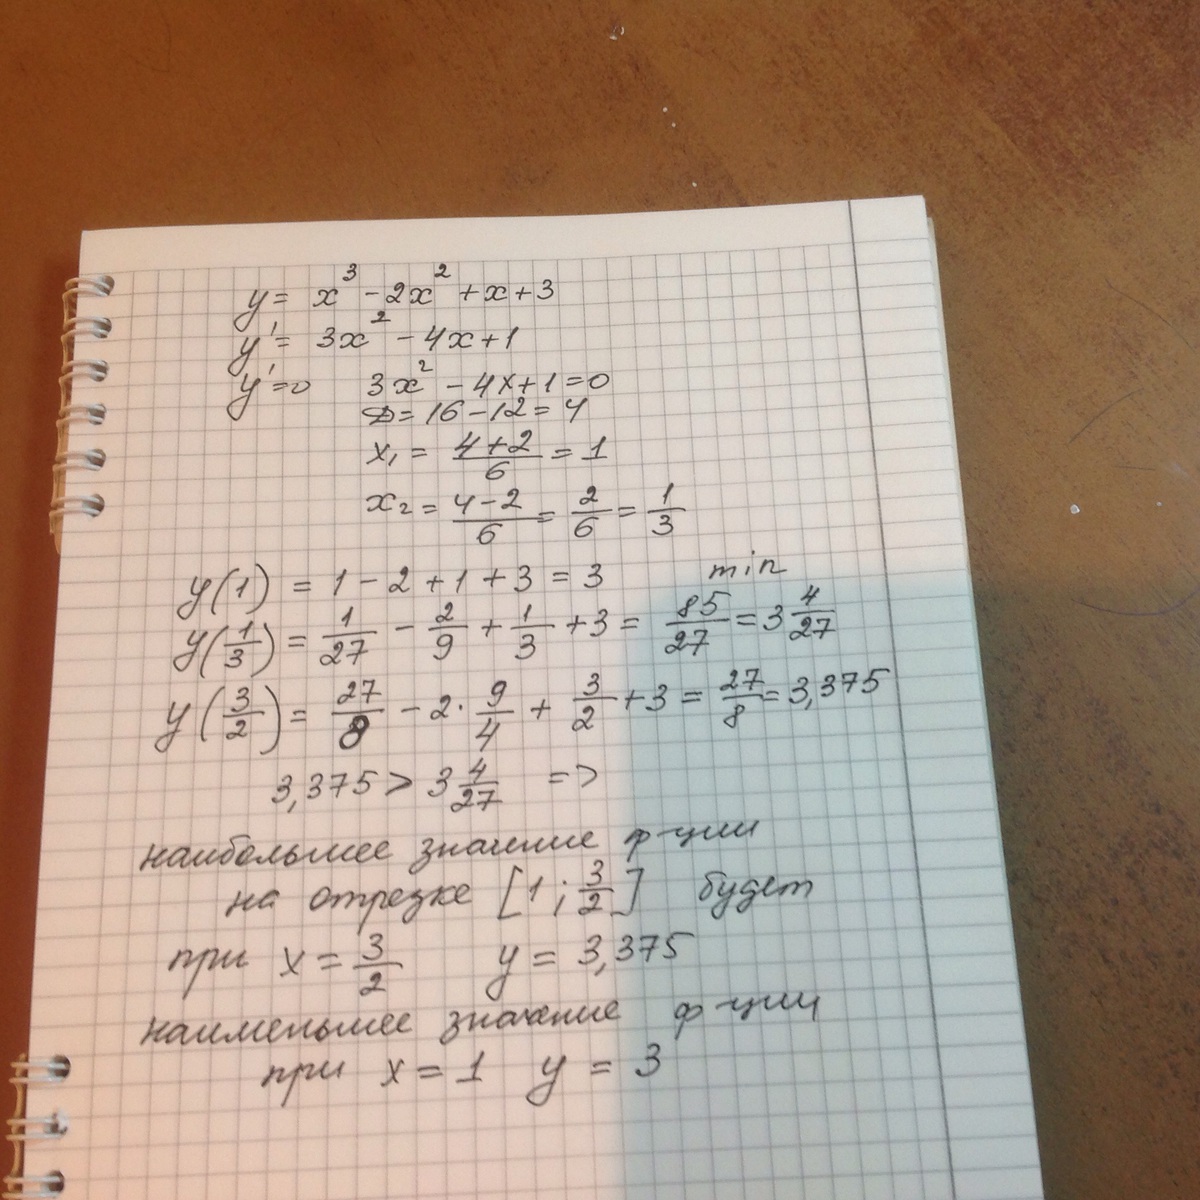 y = x³ - 2x² + x + 3
y' = 3x² - 4x + 1
y' = 0 3x² - 4x + 1 = 0
D = 16 - 12 = 4
x₁ = (4+2)/6 = 1
x₂ = (4-2)/6 = 2/6 = 1/3
y(1) = 1 - 2 + 1 + 3 = 3 min
y(1/3) = 1/27 - 2/9 + 1/3 + 3 = 85/27 = 3 4/27
y(3/2) = 27/8 - 2·9/4 + 3/2 + 3 = 27/8 = 3,375
3,375 > 3 4/27 =>
наибольшее значение ф-ции
на отрезке [1; 3/2] будет
при x = 3/2 y = 3,375
наименьшее значение ф-ции
при x = 1 y = 3